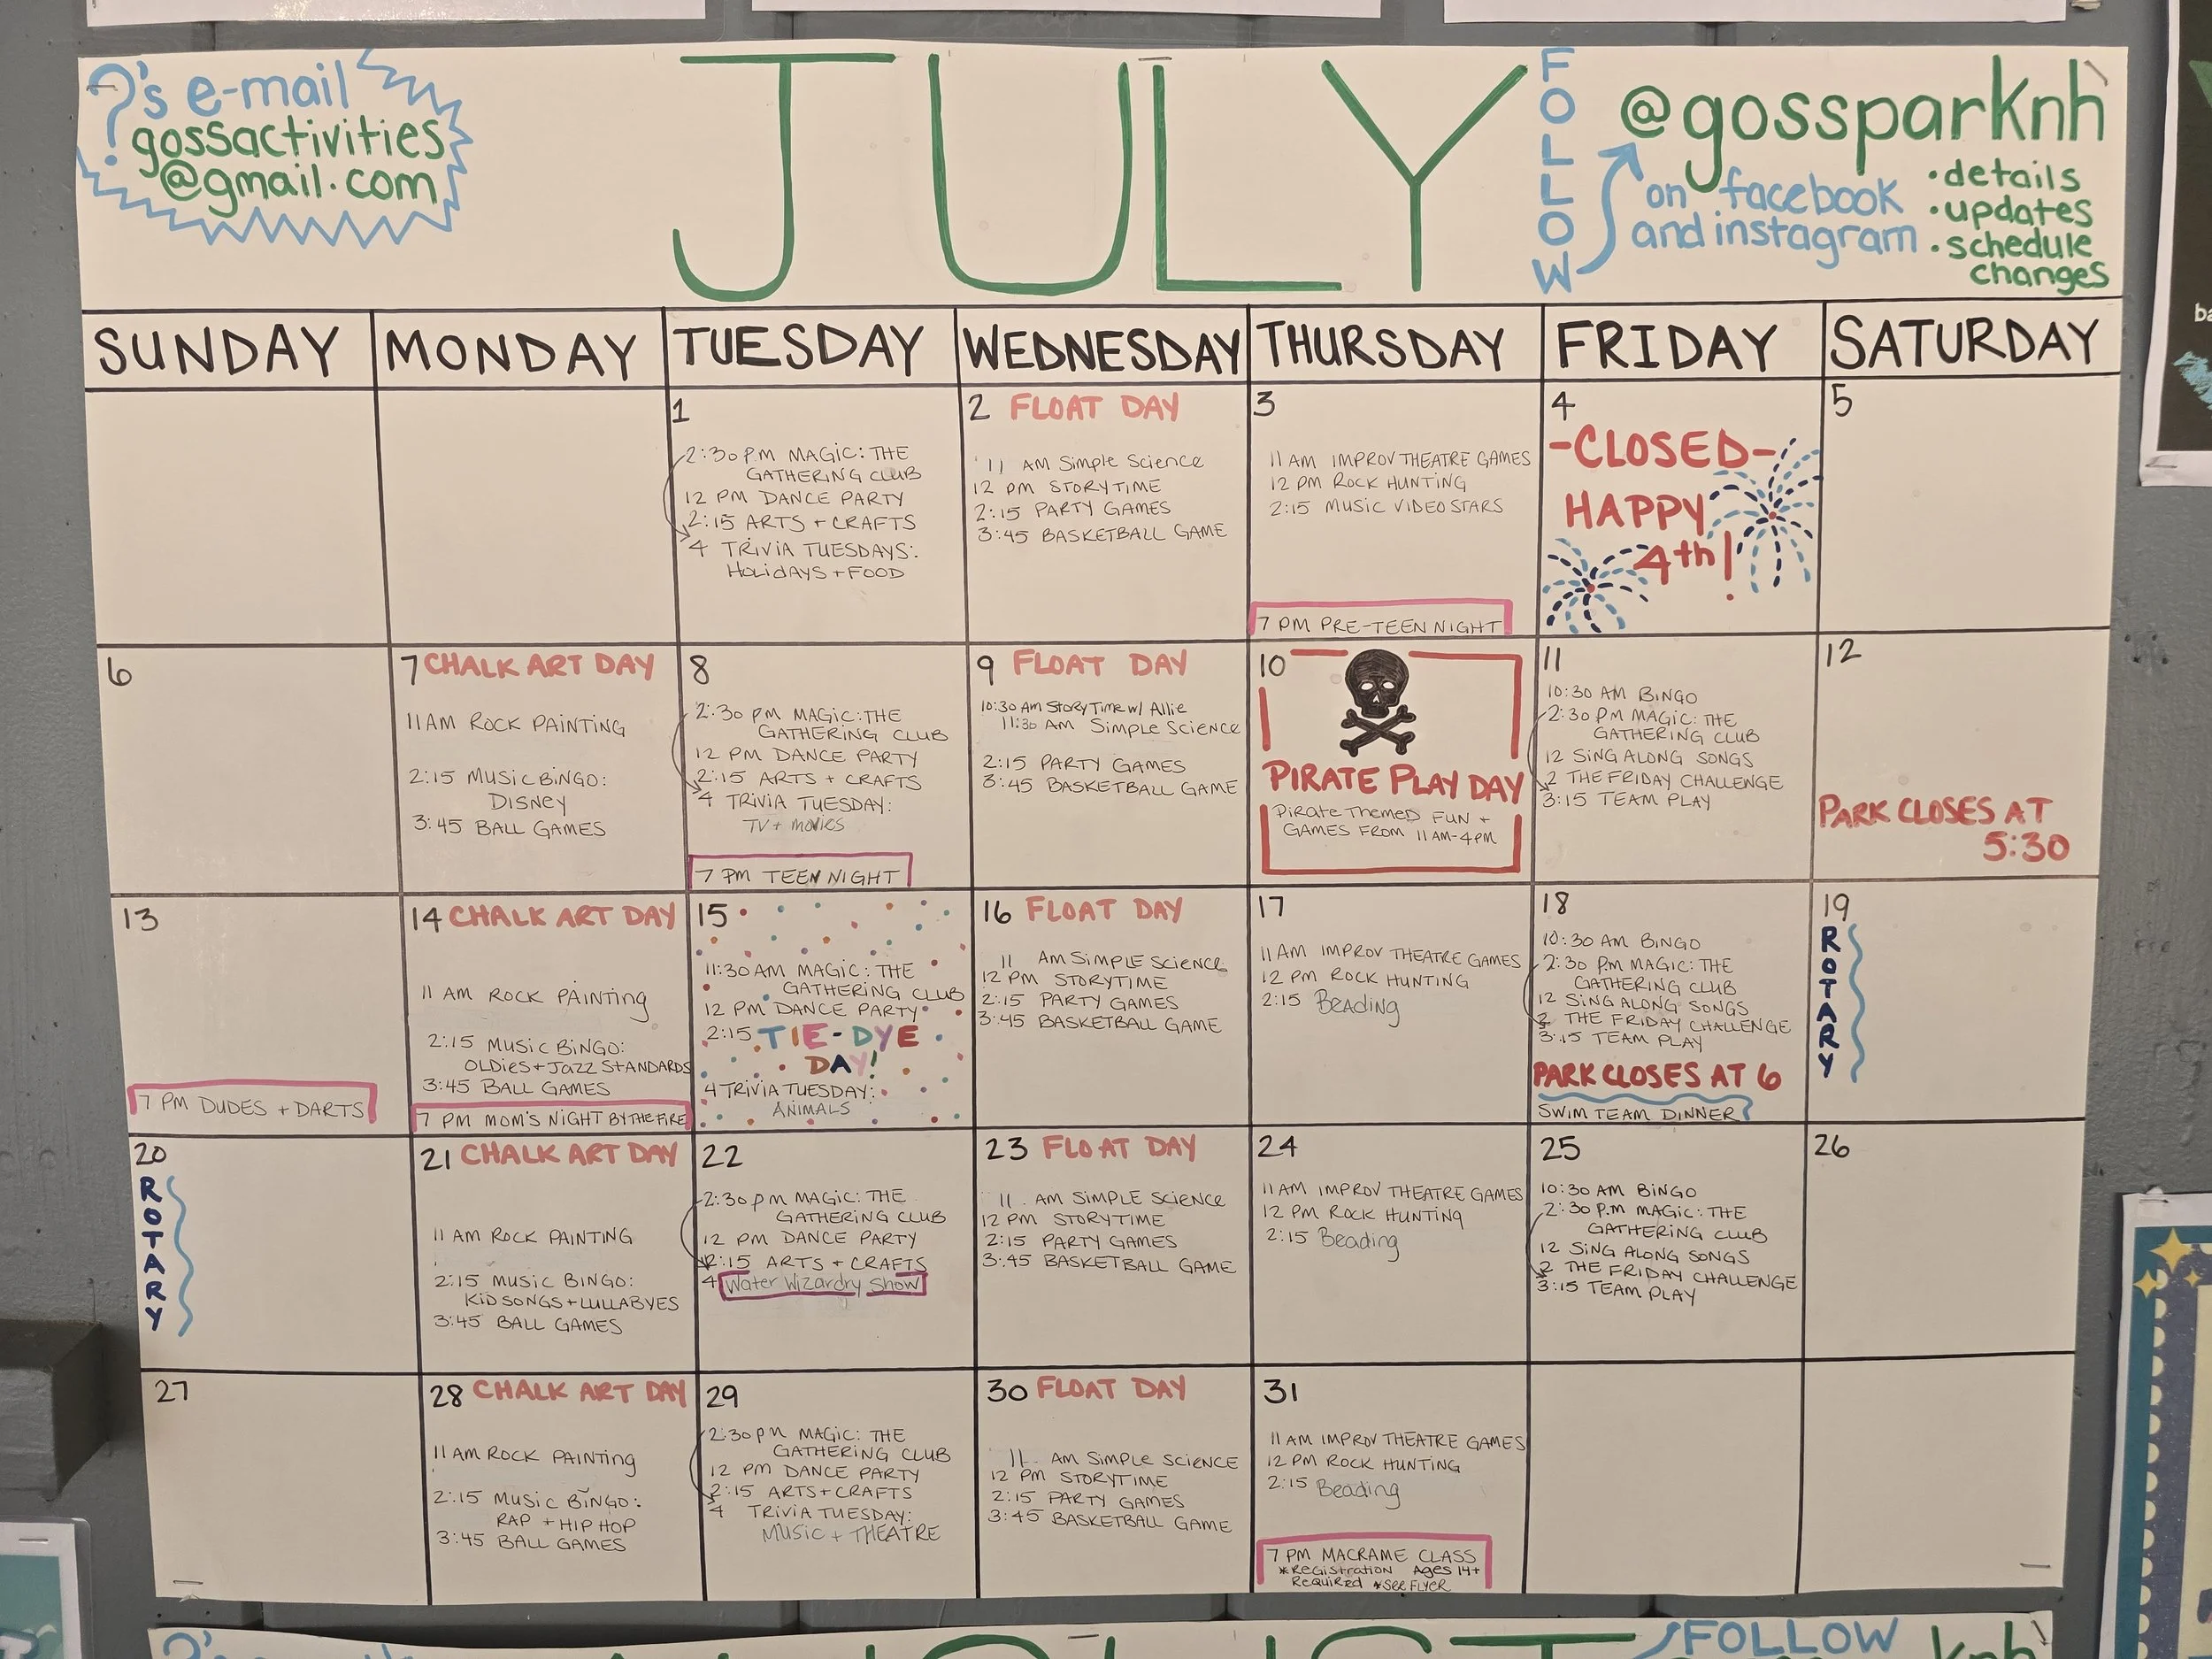 ?'s e-mail
gossactivities
@gmail.com
JULY
FOLLOW
@gossparknh
on facebook
and instagram
•details
•updates
•schedule
changes
SUNDAY
MONDAY
TUESDAY
WEDNESDAY
THURSDAY
FRIDAY
SATURDAY
1
2:30 PM MAGIC: THE
GATHERING CLUB
12 PM DANCE PARTY
2:15 ARTS + CRAFTS
4 TRIVIA TUESDAYS:
HOLIDAYS + FOOD
2 FLOAT DAY
11 AM Simple Science
12 PM STORYTIME
2:15 PARTY GAMES
3:45 BASKETBALL GAME
3
11 AM IMPROV THEATRE GAMES
12 PM ROCK HUNTING
2:15 MUSIC VIDEO STARS
7 PM PRE-TEEN NIGHT
4
-CLOSED-
HAPPY
4th!
5
6
7 CHALK ART DAY
11 AM ROCK PAINTING
2:15 MUSIC BINGO:
DISNEY
3:45 BALL GAMES
8
2:30 PM MAGIC: THE
GATHERING CLUB
12 PM DANCE PARTY
2:15 ARTS + CRAFTS
4 TRIVIA TUESDAY:
TV + movies
7 PM TEEN NIGHT
9 FLOAT DAY
10:30 AM StoryTime w/ Allie
11:30 AM Simple Science
2:15 PARTY GAMES
3:45 BASKETBALL GAME
10
PIRATE PLAY DAY
PIRATE THEMED FUN +
GAMES FROM 11 AM-4PM
11
10:30 AM BINGO
2:30 PM MAGIC: THE
GATHERING CLUB
12 SING ALONG SONGS
2 THE FRIDAY CHALLENGE
3:15 TEAM PLAY
12
PARK CLOSES AT
5:30
13
7 PM DUDES + DARTS
14 CHALK ART DAY
11 AM ROCK PAINTING
2:15 MUSIC BINGO:
OLDIES + JAZZ STANDARDS
3:45 BALL GAMES
7 PM MOM'S NIGHT BY THE FIRE
15
11:30 AM MAGIC: THE
GATHERING CLUB
12 PM DANCE PARTY
2:15 TIE-DYE
DAY!
4 TRIVIA TUESDAY:
ANIMALS
16 FLOAT DAY
11 AM SIMPLE SCIENCE
12 PM STORYTIME
2:15 PARTY GAMES
3:45 BASKETBALL GAME
17
11 AM IMPROV THEATRE GAMES
12 PM ROCK HUNTING
2:15 Beading
18
10:30 AM BINGO
2:30 P.M MAGIC: THE
GATHERING CLUB
12 SING ALONG SONGS
2 THE FRIDAY CHALLENGE
3:15 TEAM PLAY
PARK CLOSES AT 6
SWIM TEAM DINNER
19
ROTARY
20
ROTARY
21 CHALK ART DAY
11 AM ROCK PAINTING
2:15 MUSIC BINGO:
KID SONGS + LULLABYES
3:45 BALL GAMES
22
2:30 PM MAGIC: THE
GATHERING CLUB
12 PM DANCE PARTY
2:15 ARTS + CRAFTS
4 Water Wizardry Show
23 FLOAT DAY
11 AM SIMPLE SCIENCE
12 PM STORYTIME
2:15 PARTY GAMES
3:45 BASKETBALL GAME
24
11 AM IMPROV THEATRE GAMES
12 PM ROCK HUNTING
2:15 Beading
25
10:30 AM BINGO
2:30 P.M MAGIC: THE
GATHERING CLUB
12 SING ALONG SONGS
2 THE FRIDAY CHALLENGE
3:15 TEAM PLAY
26
27
28 CHALK ART DAY
11 AM ROCK PAINTING
2:15 MUSIC BINGO:
RAP + HIP HOP
3:45 BALL GAMES
29
2:30 PM MAGIC: THE
GATHERING CLUB
12 PM DANCE PARTY
2:15 ARTS + CRAFTS
4 TRIVIA TUESDAY:
MUSIC + THEATRE
30 FLOAT DAY
11 AM Simple SCIENCE
12 PM STORYTIME
2:15 PARTY GAMES
3:45 BASKETBALL GAME
31
11 AM IMPROV THEATRE GAMES
12 PM ROCK HUNTING
2:15 Beading
7 PM MACRAME CLASS
*REGISTRATION AGES 14+
REQUIRED *SEE FLYER
FOLLOW